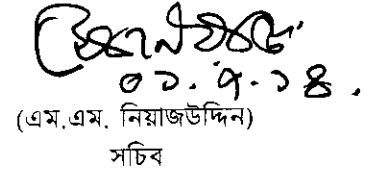 ০১.৭.১৪.
(এম.এম. নিয়াজউদ্দিন)
সচিব